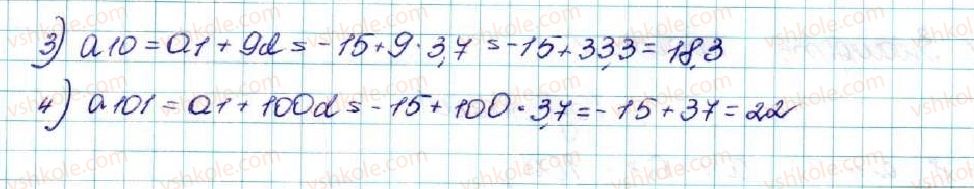 3) a10 = a1 + 9d = -15 + 9 · 3,7 = -15 + 33,3 = 18,3
4) a101 = a1 + 100d = -15 + 100 · 3,7 = -15 + 37 = 22